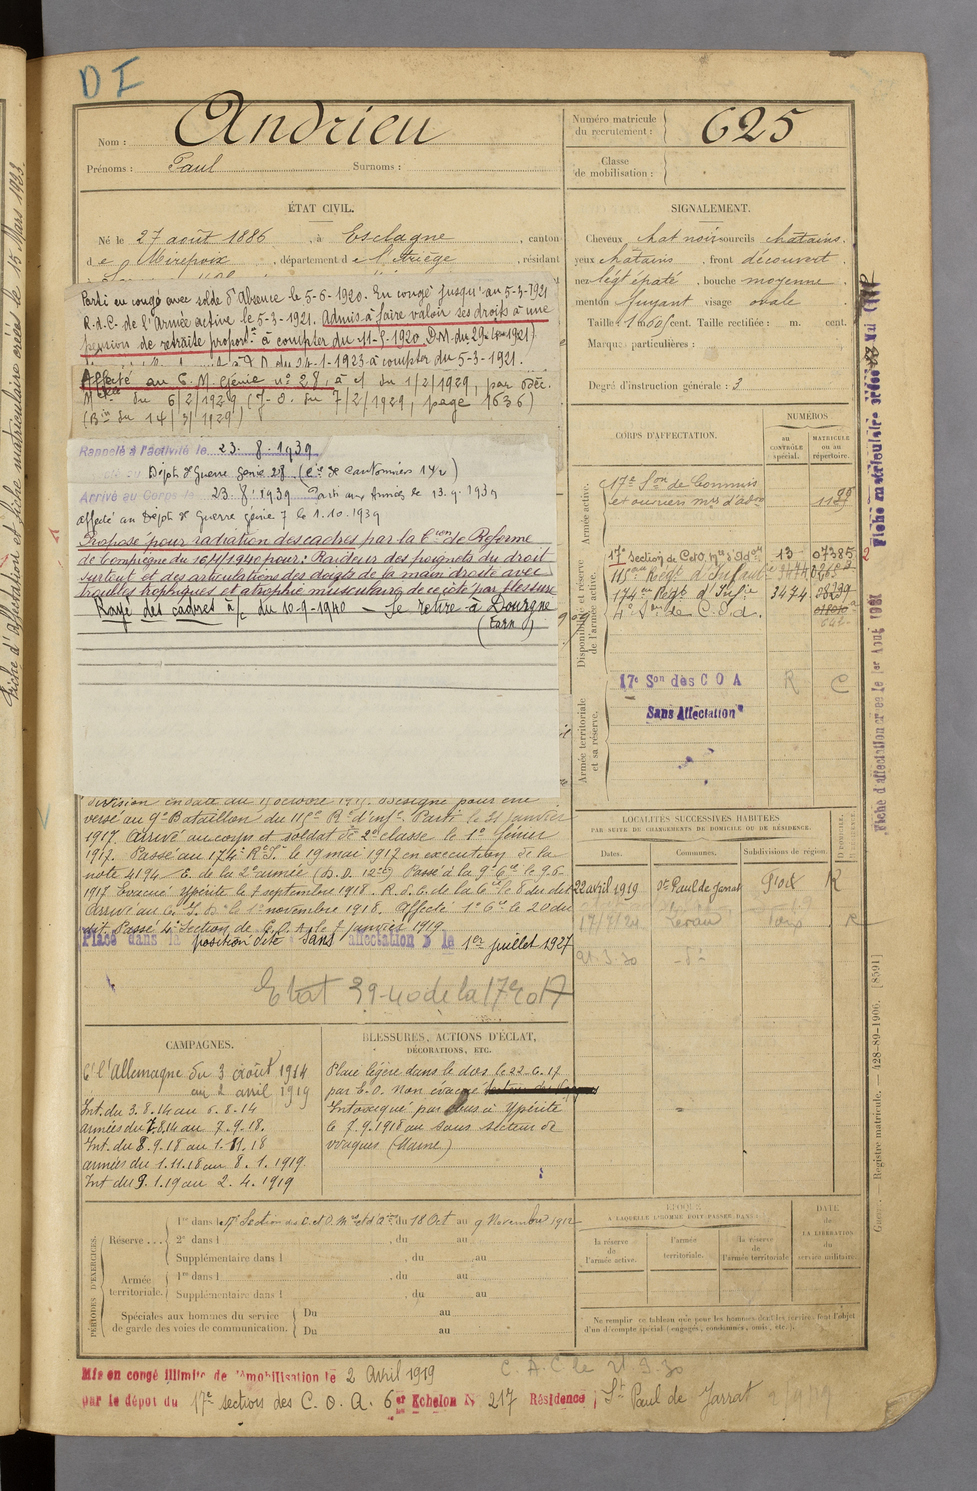 D I
Nom : Andrieu
Prénoms : Paul Surnoms :
Numéro matricule
du recrutement : 625
Classe
de mobilisation :
ÉTAT CIVIL.
Né le 27 août 1886, à Esclagne, canton
de Mirepoix, département de l'Ariège, résidant
SIGNALEMENT.
Cheveux chat noir sourcils châtains.
yeux châtains, front découvert,
nez légt épaté, bouche moyenne,
menton fuyant visage ovale
Taille : 1 m 605 cent. Taille rectifiée : m. cent.
Marques particulières :
Degré d'instruction générale : 3
Parti en congé avec solde d'absence le 5-6-1920. En congé jusqu'au 5-3-1921
R.d.C. de l'Armée active le 5-3-1921. Admis à faire valoir ses droits à une
pension de retraite proport. à compter du 11-5-1920 D.M. du 29
24-1-1923 à compter du 5-3-1921.
Affecté au C. M. Génie n° 28, à du 1/2/1929, par Déc.
Melle du 6/2/1929 (J-O. du 7/2/1929, page 1636)
Rappelé à l'activité le 23.8.1939
Dépôt de Guerre Génie 28 (Cie de Cantonniers 142)
Arrivé au Corps le 23.8.1939 Parti aux Armées le 13.9.1939
affecté au Dépôt de Guerre génie 7 le 1.10.1939
Proposé pour radiation des cadres par la Cion de Réforme
de Compiègne du 16/4/1940 pour : Raideur des poignets du droit
surtout et des articulations des doigts de la main droite avec
troubles trophiques et atrophie musculaire de ce côté par blessure
Rayé des cadres à/c du 10-9-1940 – Se retire à Dourgne
(Tarn)
division en date du 15 octobre 1915. Désigné pour être
versé au 9e Bataillon du 115e Rt d'Inf. Parti le 31 janvier
1917. Arrivé au corps et soldat de 2e classe le 1er février
1917. Passé au 174e R.I. le 19 mai 1917 en exécution de la
note 4194 E. de la 2e armée Passé à la 9e Cie le 9.6
1917 Evacué Ypérité le 7 septembre 1918. R.d.C. de la Cie le 8 du dit
Arrivé au C. I. D. le 1er novembre 1918. Affecté 1e Cie le 20 du
dit. Passé 4e Section de C.O.A. le 7 janvier 1919.
Placé dans la position dite « Sans affectation » le 1er juillet 1927
Etat 39-40 de la 17e
CORPS D'AFFECTATION.
NUMÉROS
au
CONTRÔLE
spécial.
MATRICULE
ou au
répertoire.
Armée active.
17e Son de Commis
et ouvriers mres d'adon
Disponibilité et réserve
de l'armée active.
17e Section de C et O. Mre d'Adon 13 07385
115ème Régt d'Infanterie 3474
174ème Régt d'Infie 3474
4e Son de C.O.A.
Armée territoriale
et sa réserve.
17e Son des C O A R C
Sans Affectation
LOCALITÉS SUCCESSIVES HABITÉES
PAR SUITE DE CHANGEMENTS DE DOMICILE OU DE RÉSIDENCE.
Dates. Communes. Subdivisions de région.
22 avril 1919 St Paul de Jarrat Foix R
17/7/24 Léran Foix R
21.3.30 – d°
CAMPAGNES.
C/ l'Allemagne du 3 août 1914
au 2 avril 1919
Int. du 3.8.14 au 6.8.14
armées du 7.8.14 au 7.9.18.
Int. du 8.9.18 au 1.11.18
armées du 1.11.18 au 8.1.1919.
Int du 9.1.19 au 2.4.1919
BLESSURES, ACTIONS D'ÉCLAT,
DÉCORATIONS, ETC.
Plaie légère dans le dos le 22.6.17
par E.O. Non évacué
Intoxiqué par obus à Ypérite
le 7.9.1918 au sous secteur de
(Marne)
PÉRIODES D'EXERCICES.
Réserve ... 1re dans le 17e Section des C. et O. Mre et d'Aon du 18 Oct au 9 Novembre 1912
2e dans l , du au
Supplémentaire dans l , du au
Armée
territoriale. 1re dans l , du au
Supplémentaire dans l , du au
Spéciales aux hommes du service
de garde des voies de communication. Du au
Du au
ÉPOQUE
À LAQUELLE L'HOMME DOIT PASSER DANS
la réserve
de
l'armée active.
l'armée
territoriale.
la réserve
de
l'armée territoriale
DATE
de
LA LIBÉRATION
du
service militaire.
Ne remplir ce tableau que pour les hommes dont les services font l'objet
d'un décompte spécial (engagés, condamnés, omis, etc.).
Mis en congé illimité de démobilisation le 2 Avril 1919
par le dépôt du 17e section des C. O. A. 6er Echelon N° 217 Résidence ; St Paul de Jarrat
C.A.C le 21.3.30
Fiche d'affectation et fiche matriculaire créées le 15 Mars 1923
Fiche d'affectation créée le 1er Août 1931
Fiche matriculaire créée Mai
Guerre. — Registre matricule. — 428-89-1906. [8591]